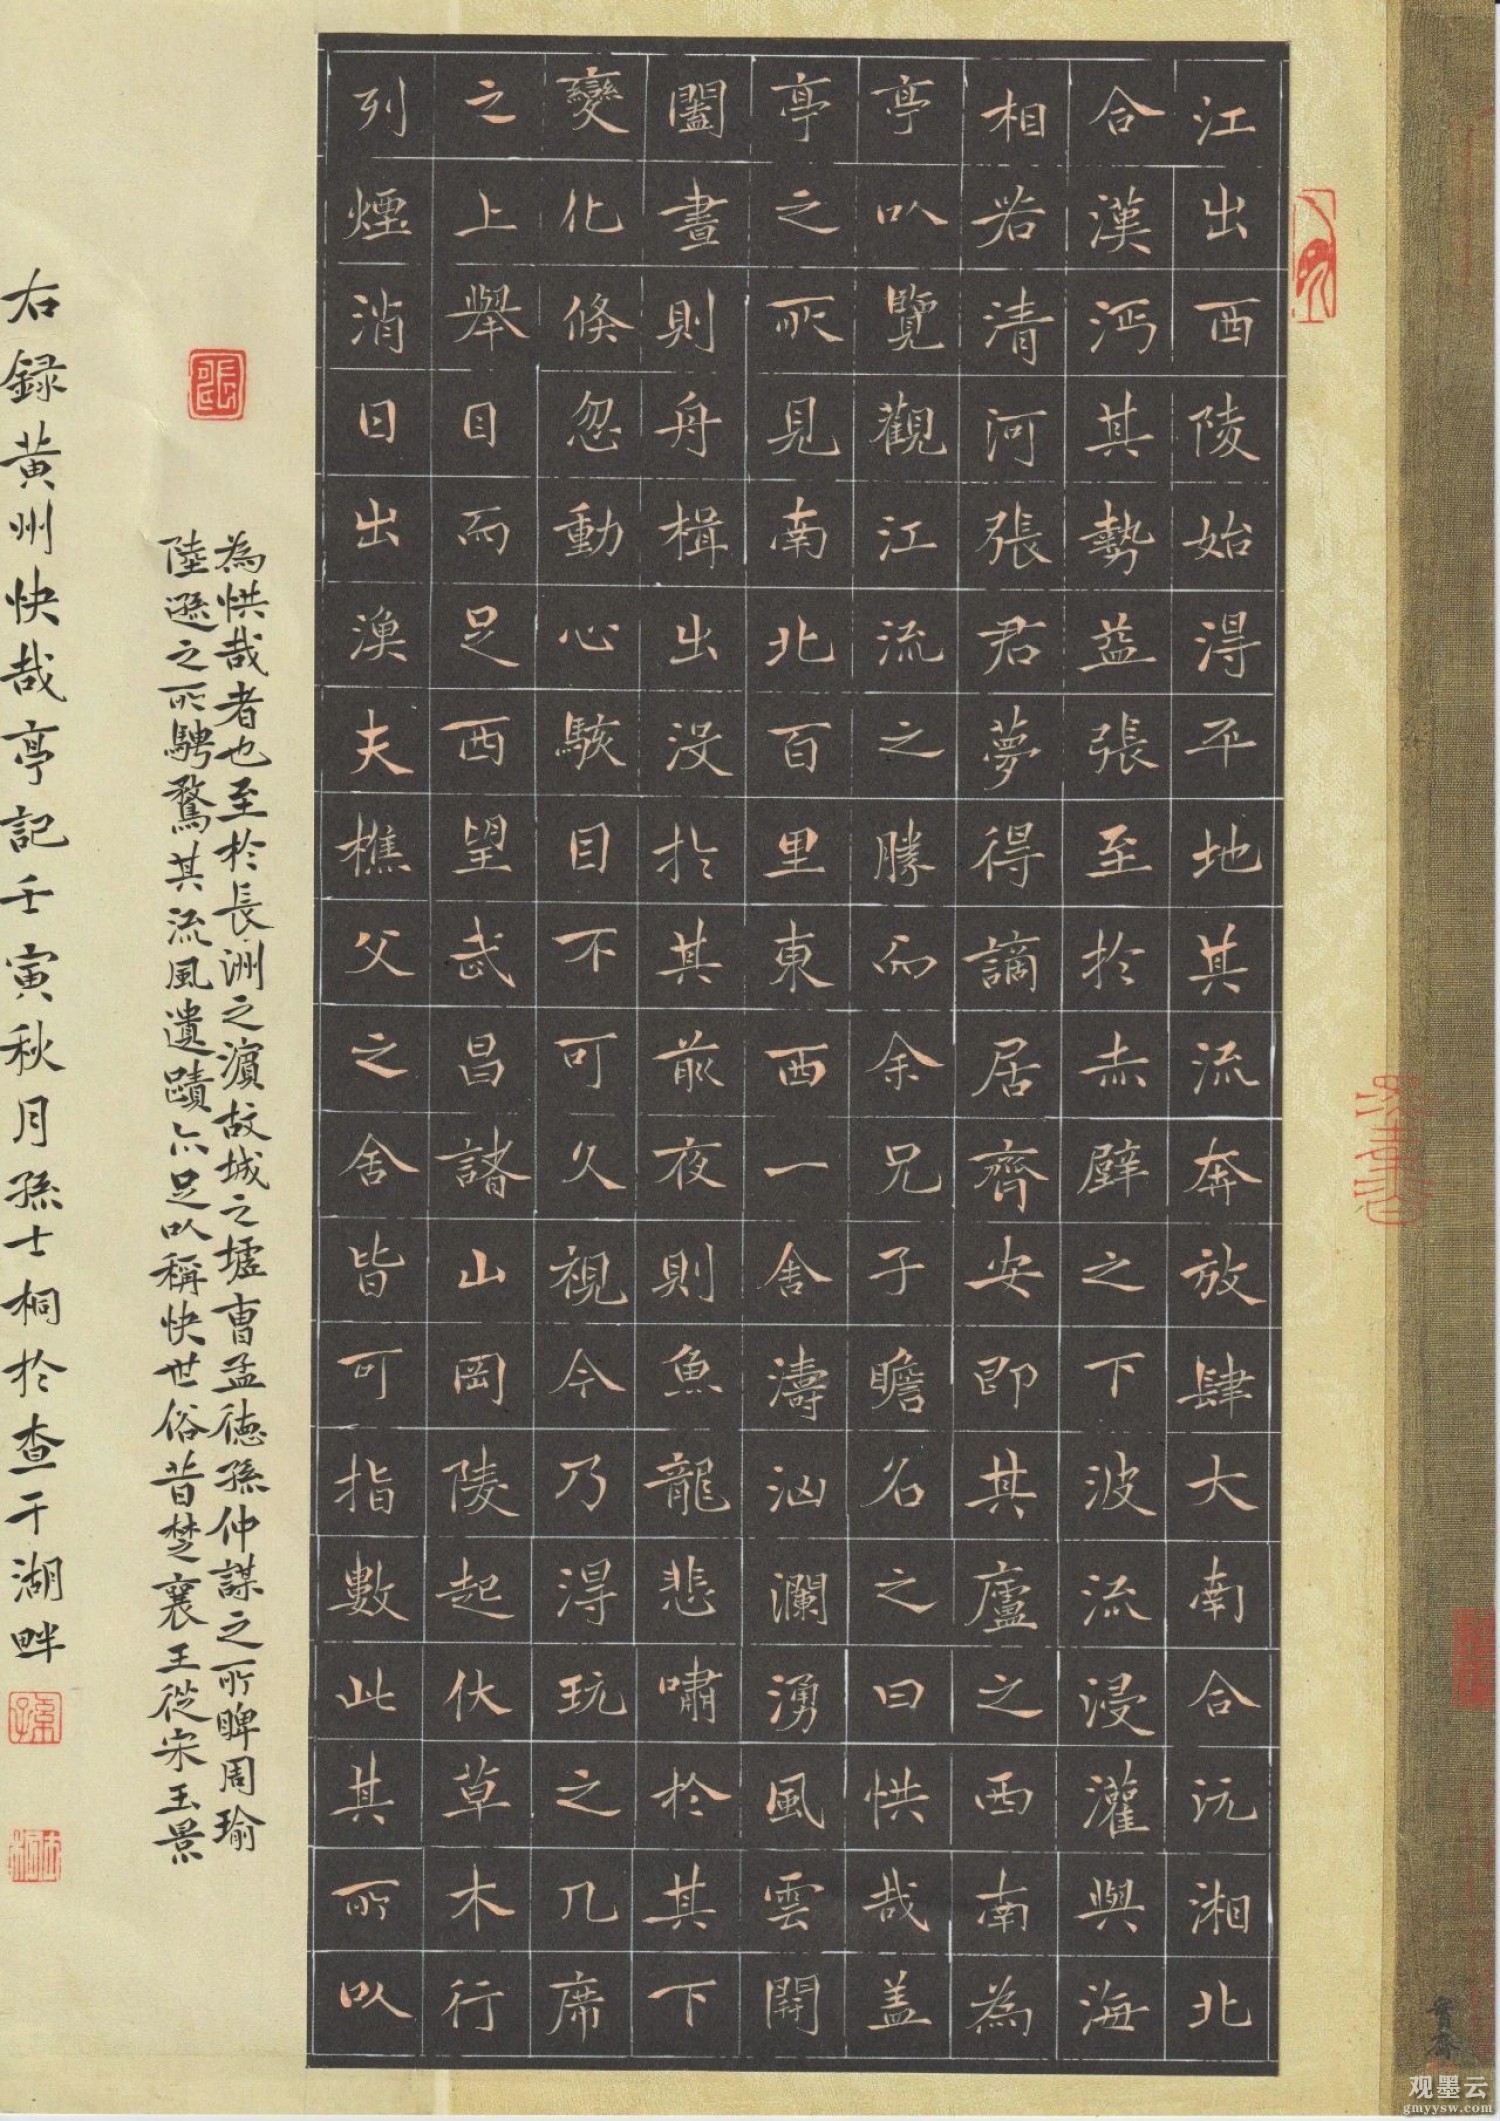 江出西陵始淂平地其流奔放肆大南合沅湘北
合漢沔其勢益張至於赤壁之下波流浸灌與海
相若清河張君夢得謫居齊安即其廬之西南為
亭以覽觀江流之勝而余兄子瞻名之曰快哉蓋
亭之所見南北百里東西一舍濤汹瀾湧風雲開
闔晝則舟楫出没於其前夜則魚龍悲嘯於其下
變化倏忽動心駭目不可久視今乃淂玩之几席
之上舉目而足西望武昌諸山岡陵起伏草木行
列煙消日出漁夫樵父之舍皆可指數此其所以
為快哉者也至於長洲之濵故城之墟曹孟德孫仲謀之所睥周瑜
陸遜之所騁騖其流風遺蹟亦足以稱快世俗昔楚襄王從宋玉景
右録黄州快哉亭記壬寅秋月孫士桐於查干湖畔
观墨云
gmyysw.com